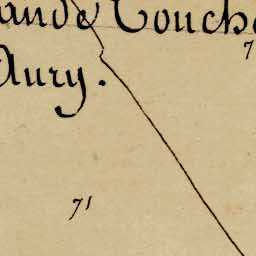 ande Touche
7
Aury.
71